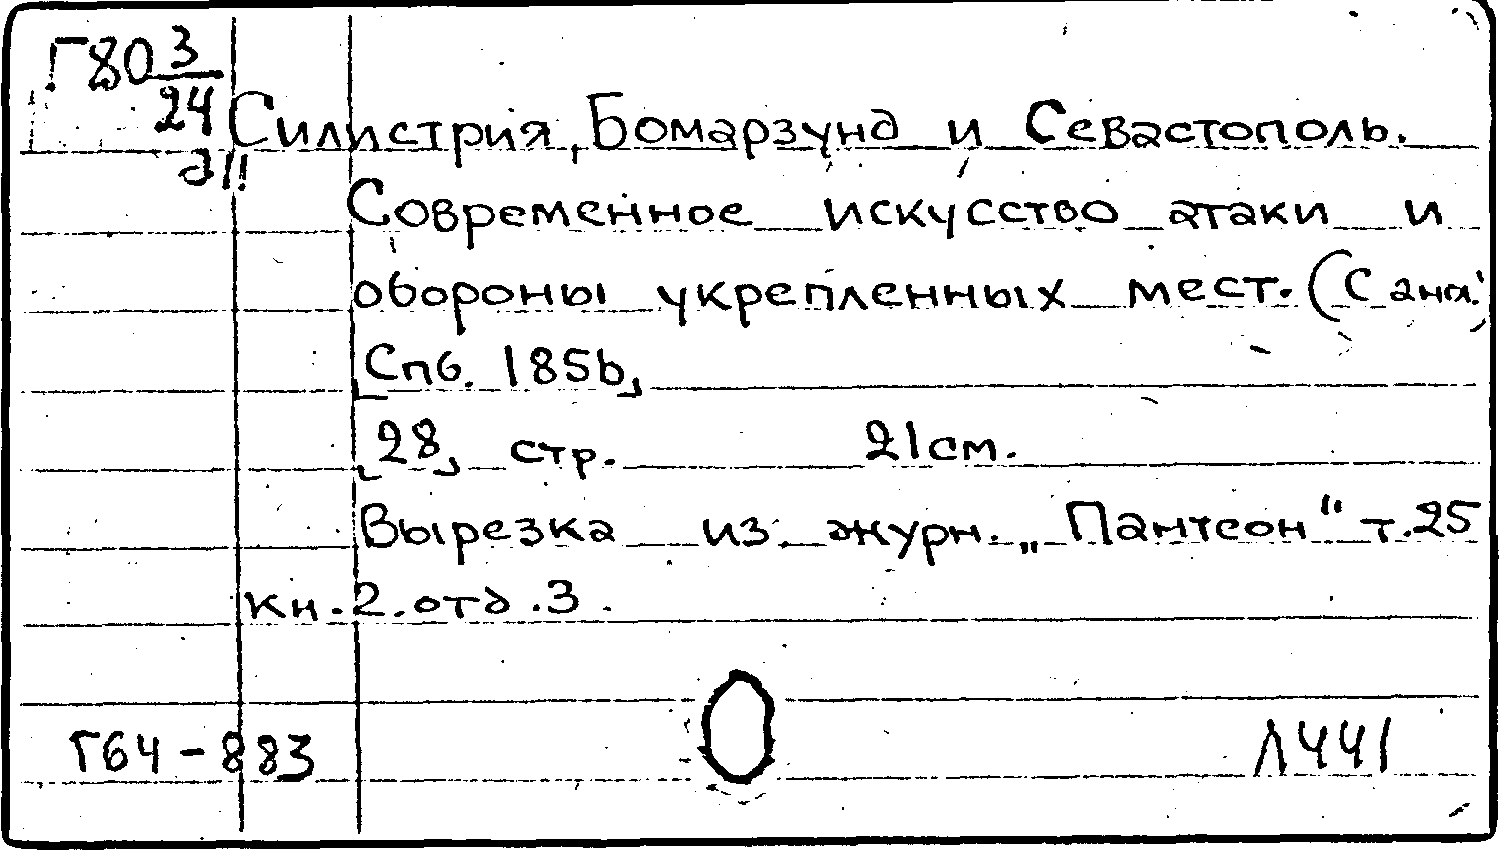 Г80 3/24
Силистрия, Бомарзунд и Севастополь.
Современное искусство атаки и
обороны укрепленных мест. (С англ.)
[Спб. 1856]
[28] стр. 21 см.
Вырезка из журн. „Пантеон" т. 25
кн. 2. отд. 3.
Г64-883
Л441